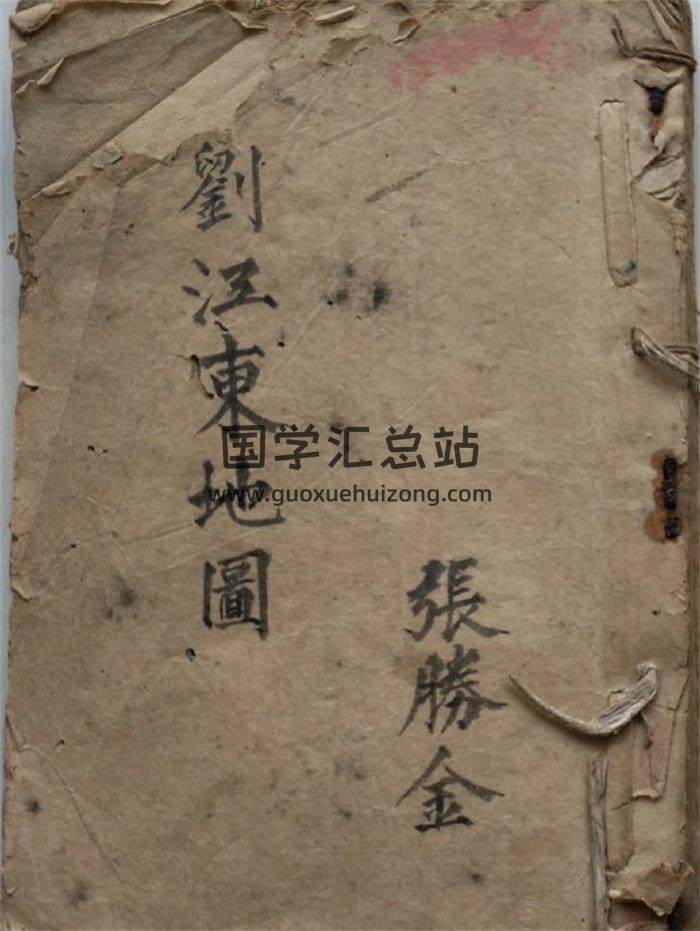 張勝金
劉江東地圖
国学汇总站
www.guoxuehuizong.com